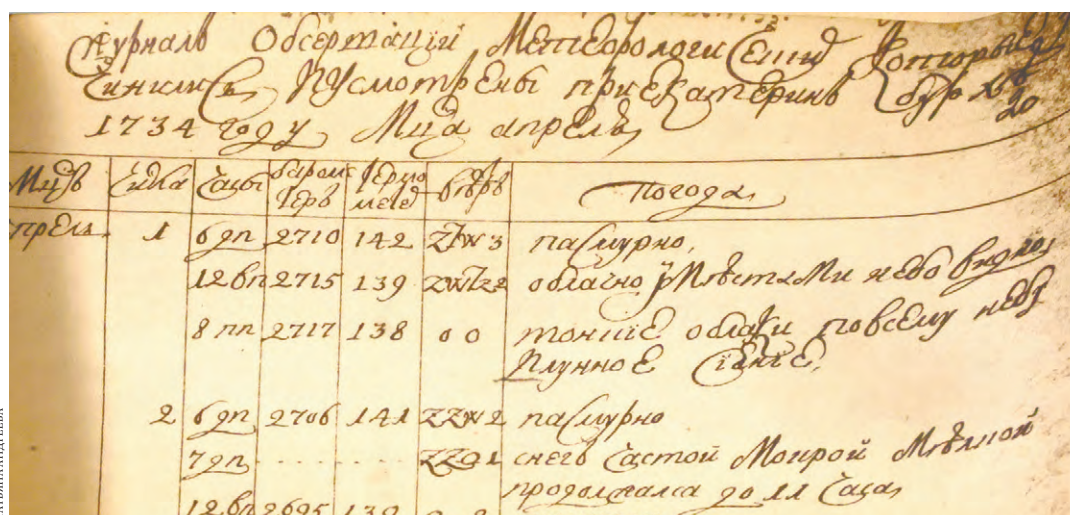 Журналъ Обсерваціи Метеорологическия которые
Чинились и усмотрены при Екатеринъ бурхѣ
1734 году Мца апрѣль 20
Мцъ Числа Часы баромѣ теръ термо метеръ вѣтръ Погода
апрель 1 6 дп 2710 142 ZtW 3 пасмурно,
12 вп 2715 139 облачно Мѣстами небо видно,
8 пп 2717 138 0 0 тонкие облаки по всему небу
И лунное Сіянье,
2 6 дп 2706 141 ZZW 2 пасмурно
7 дп ZZO 1 снегъ Частой Мокрой Мѣлкой
продолжался до 11 Часа,
12 вп 2695 139